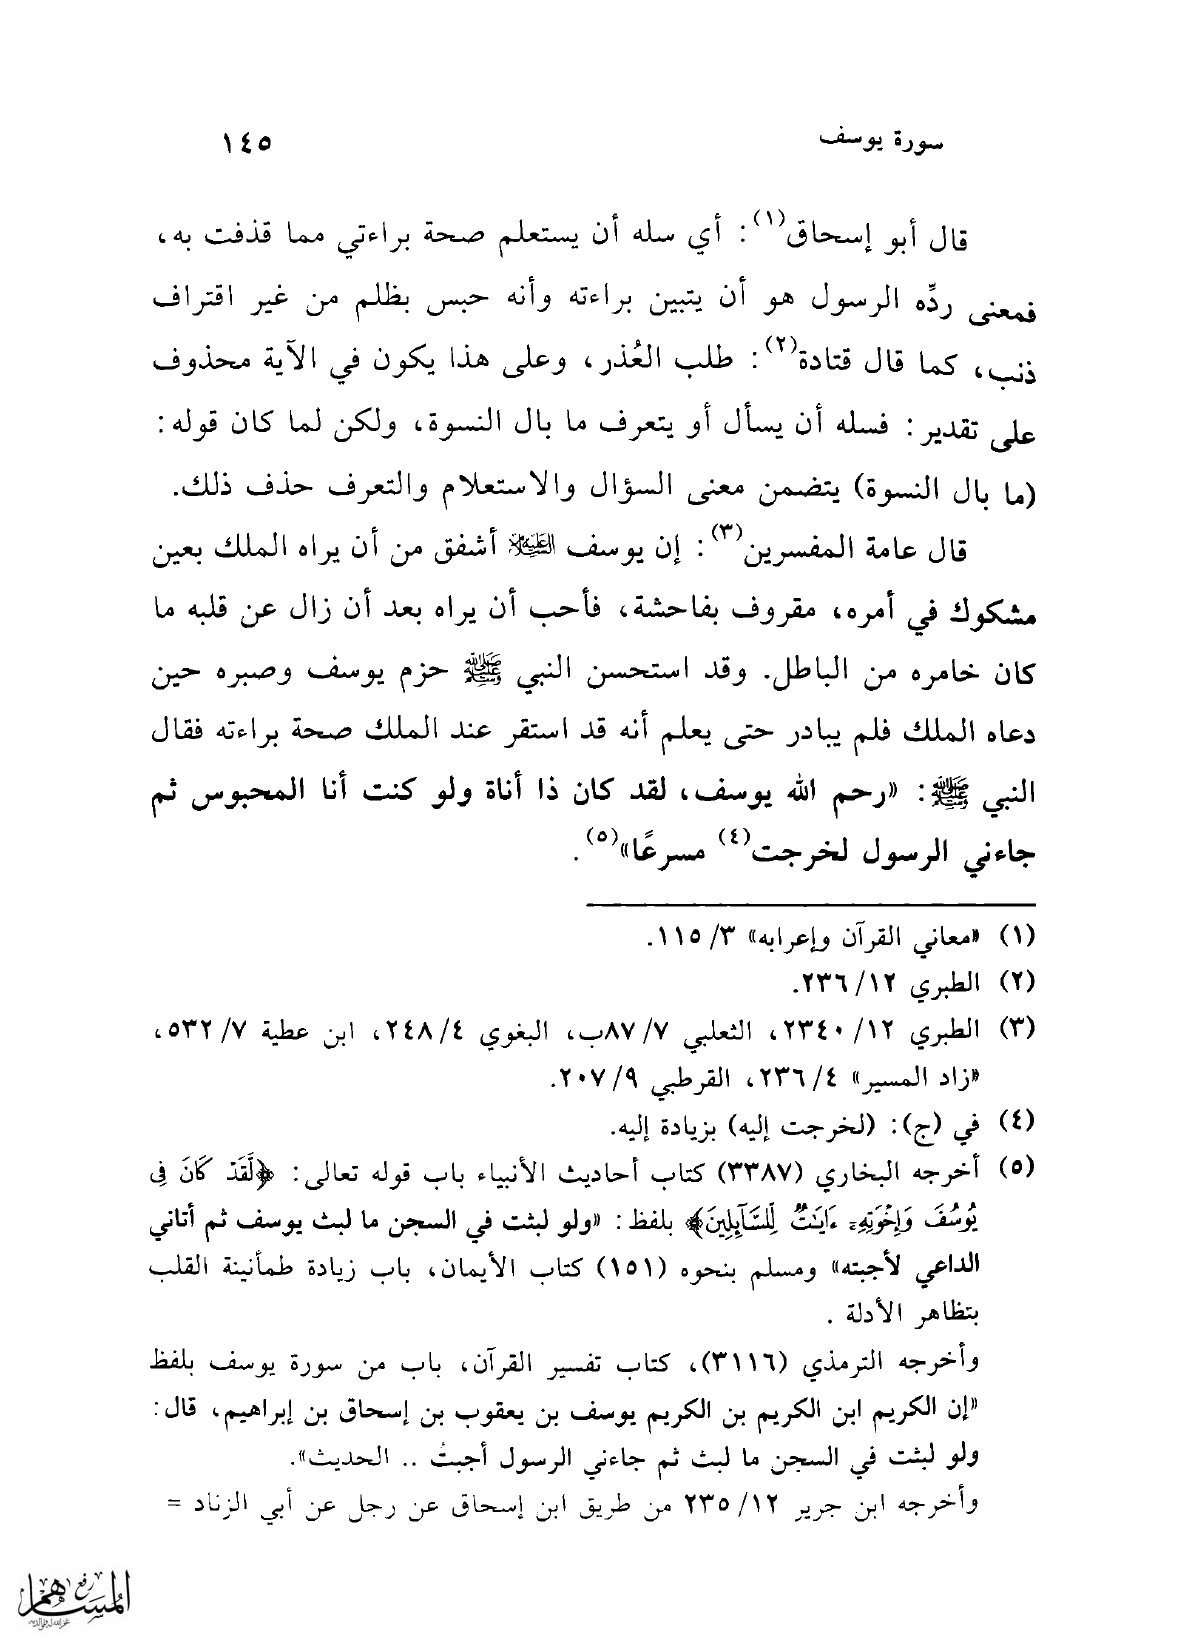 سورة يوسف ١٤٥
قال أبو إسحاق(١): أي سله أن يستعلم صحة براءتي مما قذفت به،
فمعنى ردِّه الرسول هو أن يتبين براءته وأنه حبس بظلم من غير اقتراف
ذنب، كما قال قتادة(٢): طلب العُذر، وعلى هذا يكون في الآية محذوف
على تقدير: فسله أن يسأل أو يتعرف ما بال النسوة، ولكن لما كان قوله:
(ما بال النسوة) يتضمن معنى السؤال والاستعلام والتعرف حذف ذلك.
قال عامة المفسرين(٣): إن يوسف عليه السلام أشفق من أن يراه الملك بعين
مشكوك في أمره، مقروف بفاحشة، فأحب أن يراه بعد أن زال عن قلبه ما
كان خامره من الباطل. وقد استحسن النبي ﷺ حزم يوسف وصبره حين
دعاه الملك فلم يبادر حتى يعلم أنه قد استقر عند الملك صحة براءته فقال
النبي ﷺ: «رحم الله يوسف، لقد كان ذا أناة ولو كنت أنا المحبوس ثم
جاءني الرسول لخرجت(٤) مسرعًا»(٥).
(١) «معاني القرآن وإعرابه» ٣/ ١١٥.
(٢) الطبري ١٢/ ٢٣٦.
(٣) الطبري ١٢/ ٢٣٤٠، الثعلبي ٧/ ٨٧ب، البغوي ٤/ ٢٤٨، ابن عطية ٧/ ٥٣٢،
«زاد المسير» ٤/ ٢٣٦، القرطبي ٩/ ٢٠٧.
(٤) في (ج): (لخرجت إليه) بزيادة إليه.
(٥) أخرجه البخاري (٣٣٨٧) كتاب أحاديث الأنبياء باب قوله تعالى: ﴿لَّقَدْ كَانَ فِى
يُوسُفَ وَإِخْوَتِهِۦٓ ءَايَٰتٌ لِّلسَّآئِلِينَ﴾ بلفظ: «ولو لبثت في السجن ما لبث يوسف ثم أتاني
الداعي لأجبته» ومسلم بنحوه (١٥١) كتاب الأيمان، باب زيادة طمأنينة القلب
بتظاهر الأدلة .
وأخرجه الترمذي (٣١١٦)، كتاب تفسير القرآن، باب من سورة يوسف بلفظ
«إن الكريم ابن الكريم بن الكريم يوسف بن يعقوب بن إسحاق بن إبراهيم، قال:
ولو لبثت في السجن ما لبث ثم جاءني الرسول أجبتُ .. الحديث».
وأخرجه ابن جرير ١٢/ ٢٣٥ من طريق ابن إسحاق عن رجل عن أبي الزناد =